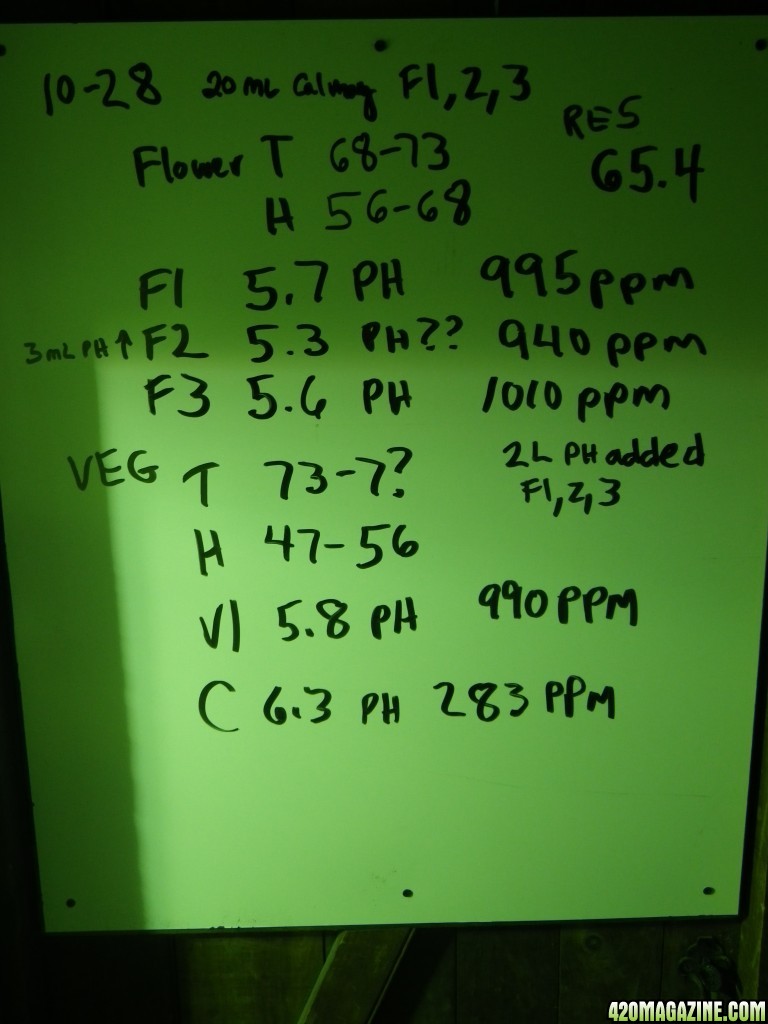 10-28 20 mL Calmag F1,2,3
RES
65.4
Flower T 68-73
H 56-68
F1 5.7 PH 995ppm
3mL PH↑ F2 5.3 PH?? 940 ppm
F3 5.6 PH 1010 ppm
VEG T 73-7?
2L PH added
F1,2,3
H 47-56
V1 5.8 PH 990 PPM
C 6.3 PH 283 PPM
420MAGAZINE.COM